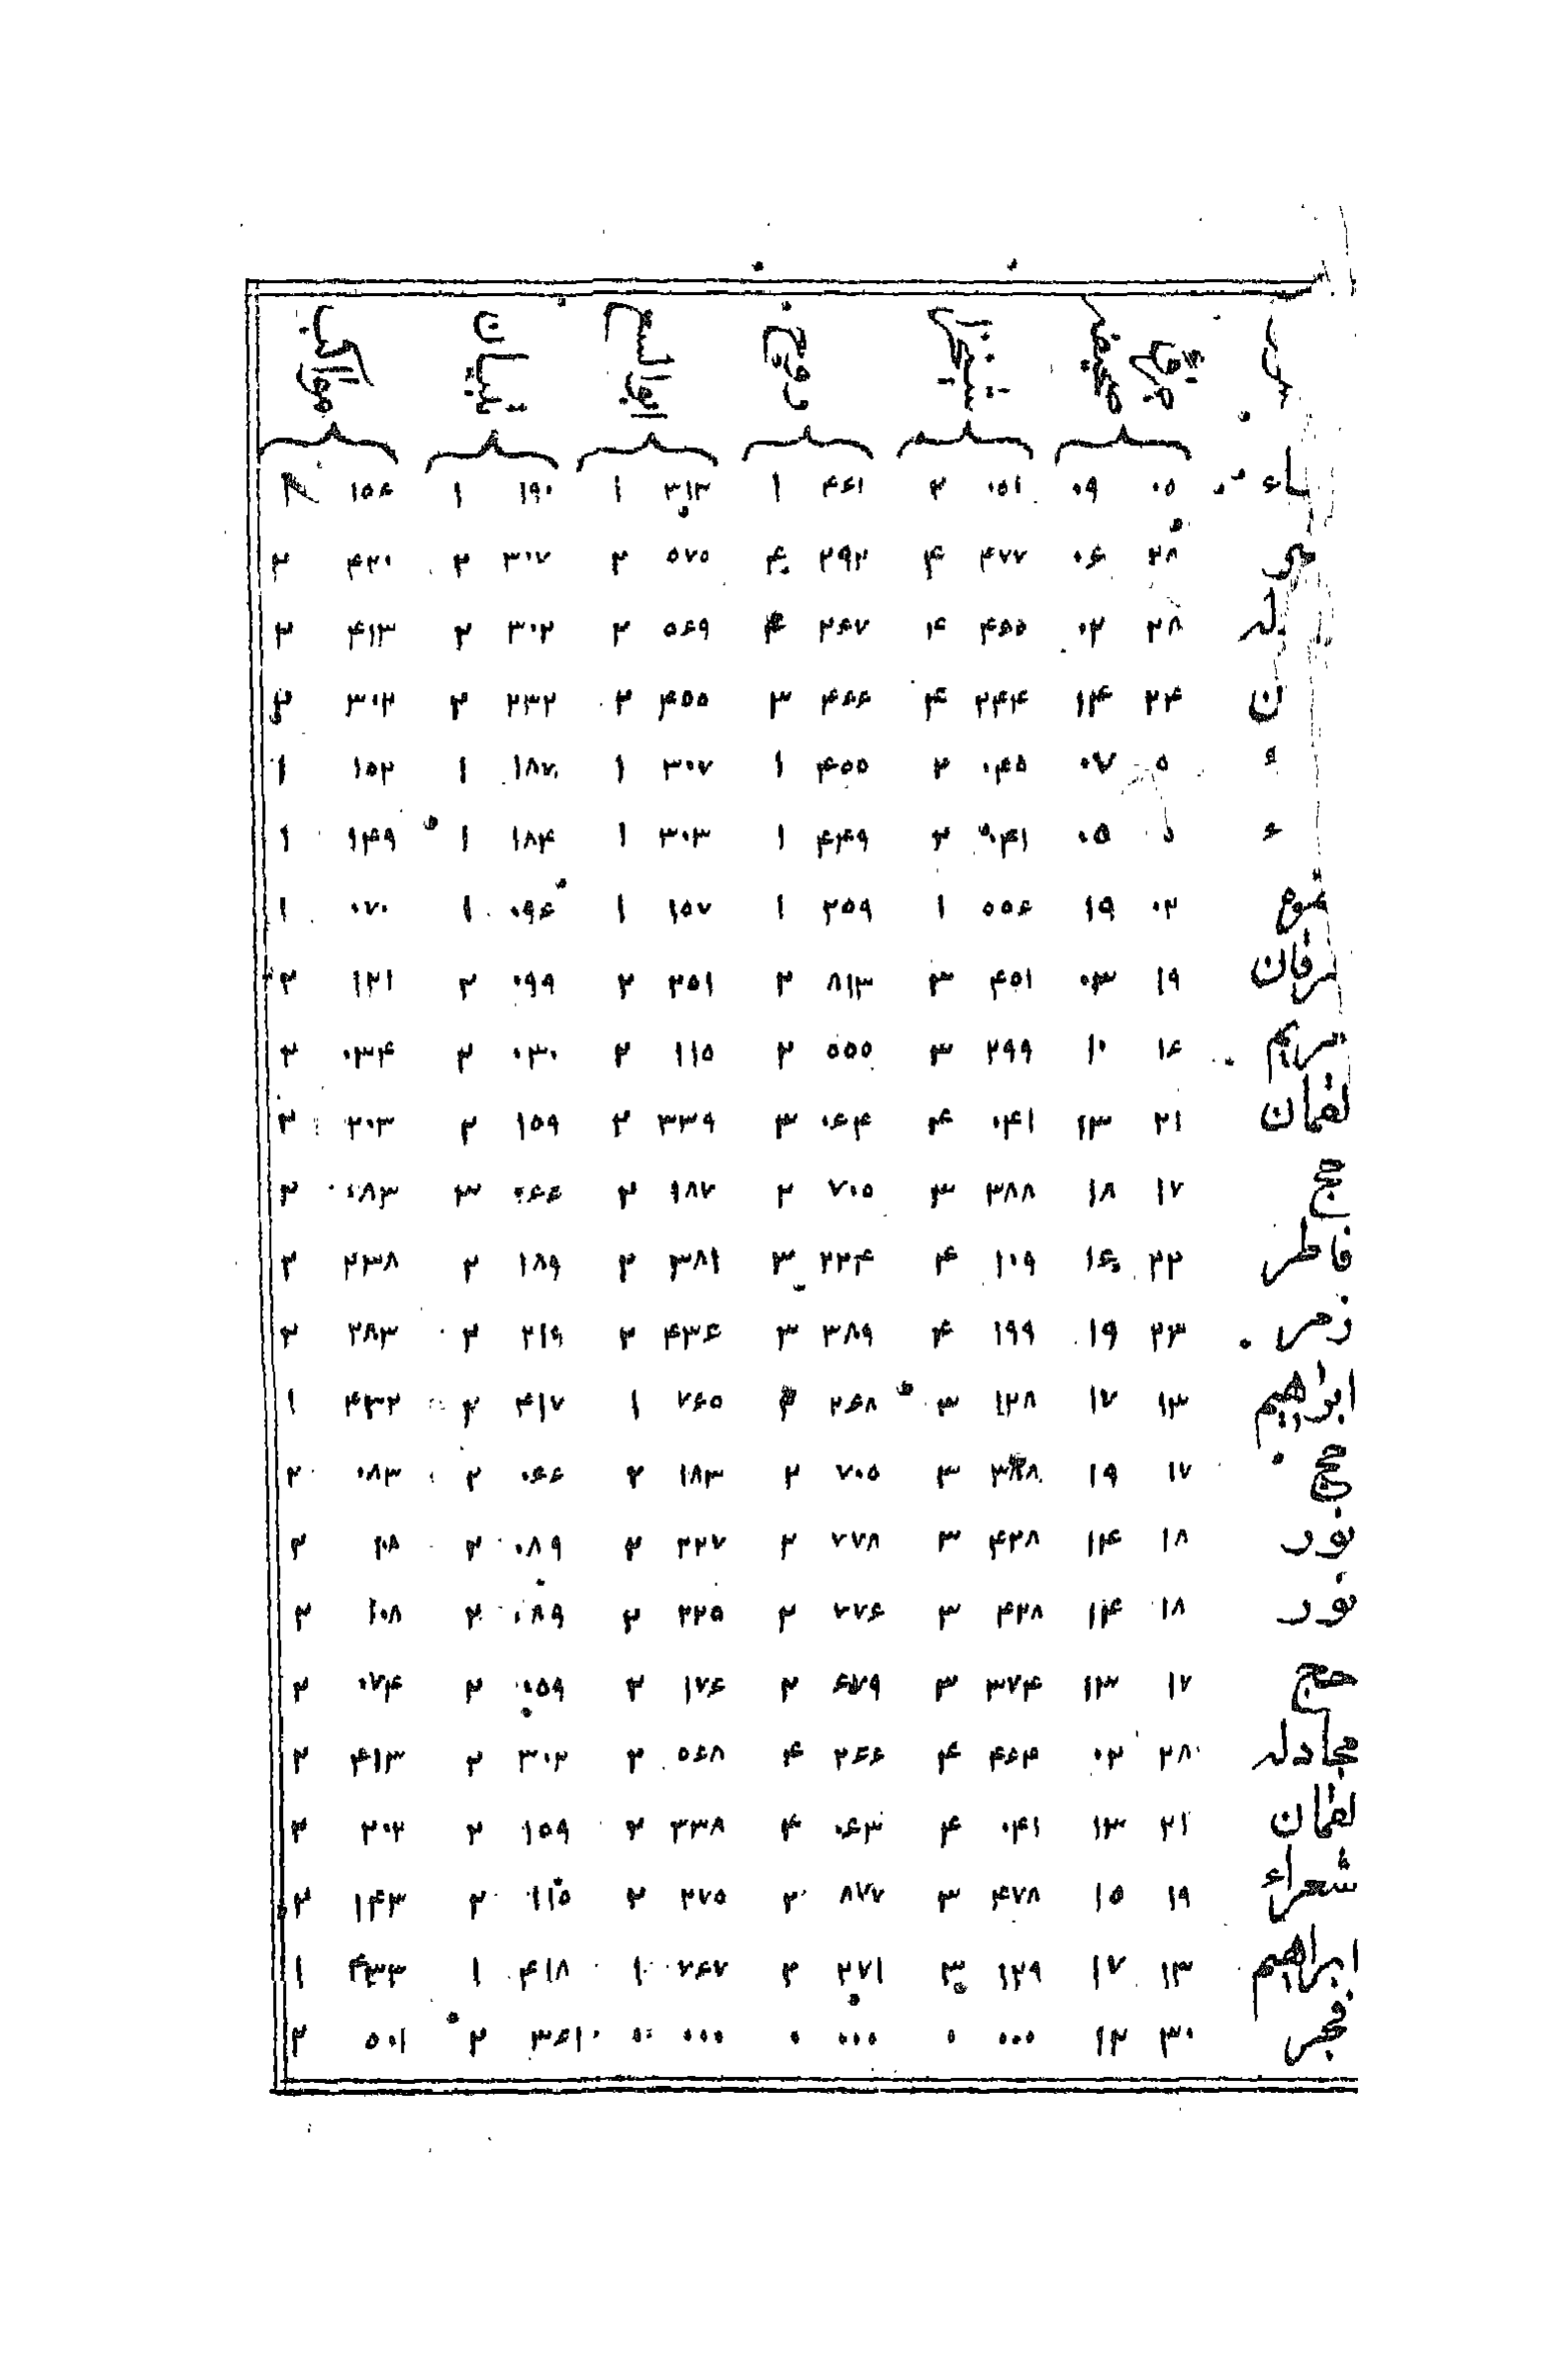 شیخزاده روح ابوالسعود تبیان مواکب
ـاء ۰۵ ۰۹ ۰۵۱ ۲ ۴۶۱ ۱ ۳۱۳ ۱ ۱۹۰ ۱ ۱۵۶
۲۸ ۰۶ ۴۷۷ ۴ ۲۹۲ ۴ ۵۷۵ ۲ ۳۰۷ ۲ ۴۲۰ ۲
ـدله ۲۸ ۰۲ ۴۶۵ ۴ ۲۶۷ ۴ ۵۶۹ ۲ ۳۰۲ ۲ ۴۱۳ ۲
ن ۲۴ ۱۴ ۲۴۴ ۴ ۴۶۶ ۳ ۴۵۵ ۲ ۲۳۲ ۲ ۳۰۲ ۲
ء ۵ ۰۷ ۰۴۵ ۲ ۴۵۵ ۱ ۳۰۷ ۱ ۱۸۷ ۱ ۱۵۲ ۱
ء ۵ ۰۵ ۰۴۱ ۲ ۴۴۹ ۱ ۳۰۳ ۱ ۱۸۴ ۱ ۱۴۹ ۱
۰۲ ۱۹ ۵۵۶ ۱ ۲۵۹ ۱ ۱۵۷ ۱ ۰۹۶ ۱ ۰۷۰ ۱
فرقان ۱۹ ۰۳ ۴۵۱ ۳ ۸۱۳ ۲ ۲۵۱ ۲ ۰۹۹ ۲ ۱۲۱ ۲
مریم ۱۶ ۱۰ ۲۹۹ ۳ ۵۵۵ ۲ ۱۱۵ ۲ ۰۳۰ ۲ ۰۳۴ ۲
لقمان ۲۱ ۱۳ ۰۴۱ ۴ ۰۶۴ ۳ ۳۳۹ ۲ ۱۵۹ ۲ ۲۰۳ ۲
حج ۱۷ ۱۸ ۳۸۸ ۳ ۷۰۵ ۲ ۱۸۷ ۲ ۰۶۶ ۳ ۰۸۳ ۲
فاطر ۲۲ ۱۶ ۱۰۹ ۴ ۲۲۴ ۳ ۳۸۱ ۲ ۱۸۹ ۲ ۲۳۸ ۲
زمر ۲۳ ۱۹ ۱۹۹ ۴ ۳۸۹ ۳ ۴۳۶ ۲ ۲۱۹ ۲ ۲۸۳ ۲
ابراهیم ۱۳ ۱۷ ۱۲۸ ۳ ۲۶۸ ۲ ۷۶۵ ۱ ۴۱۷ ۲ ۴۳۲ ۱
حج ۱۷ ۱۹ ۳۸۸ ۳ ۷۰۵ ۲ ۱۸۳ ۲ ۰۶۶ ۲ ۰۸۳ ۲
نور ۱۸ ۱۴ ۴۲۸ ۳ ۷۷۸ ۲ ۲۲۷ ۲ ۰۸۹ ۲ ۱۰۸ ۲
نور ۱۸ ۱۴ ۴۲۸ ۳ ۷۷۶ ۲ ۲۲۵ ۲ ۰۸۹ ۲ ۱۰۸ ۲
حج ۱۷ ۱۳ ۳۷۴ ۳ ۶۷۹ ۲ ۱۷۶ ۲ ۰۵۹ ۲ ۰۷۴ ۲
مجادله ۲۸ ۰۲ ۴۶۴ ۴ ۲۶۶ ۴ ۵۶۸ ۲ ۳۰۲ ۲ ۴۱۳ ۲
لقمان ۲۱ ۱۳ ۰۴۱ ۴ ۰۶۳ ۴ ۳۳۸ ۲ ۱۵۹ ۲ ۲۰۲ ۲
شعراء ۱۹ ۱۵ ۴۷۸ ۳ ۸۷۷ ۲ ۲۷۵ ۲ ۱۱۵ ۲ ۱۴۳ ۲
ابراهیم ۱۳ ۱۷ ۱۲۹ ۳ ۲۷۱ ۲ ۷۶۷ ۱ ۴۱۸ ۱ ۴۳۳ ۱
فجر ۳۰ ۱۲ ۰۰۰ ۰ ۰۰۰ ۰ ۰۰۰ ۰ ۳۶۱ ۲ ۵۰۱ ۲